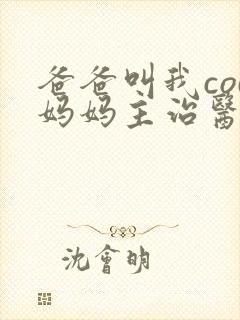 爸爸叫我co
妈妈主治醫
沈會明